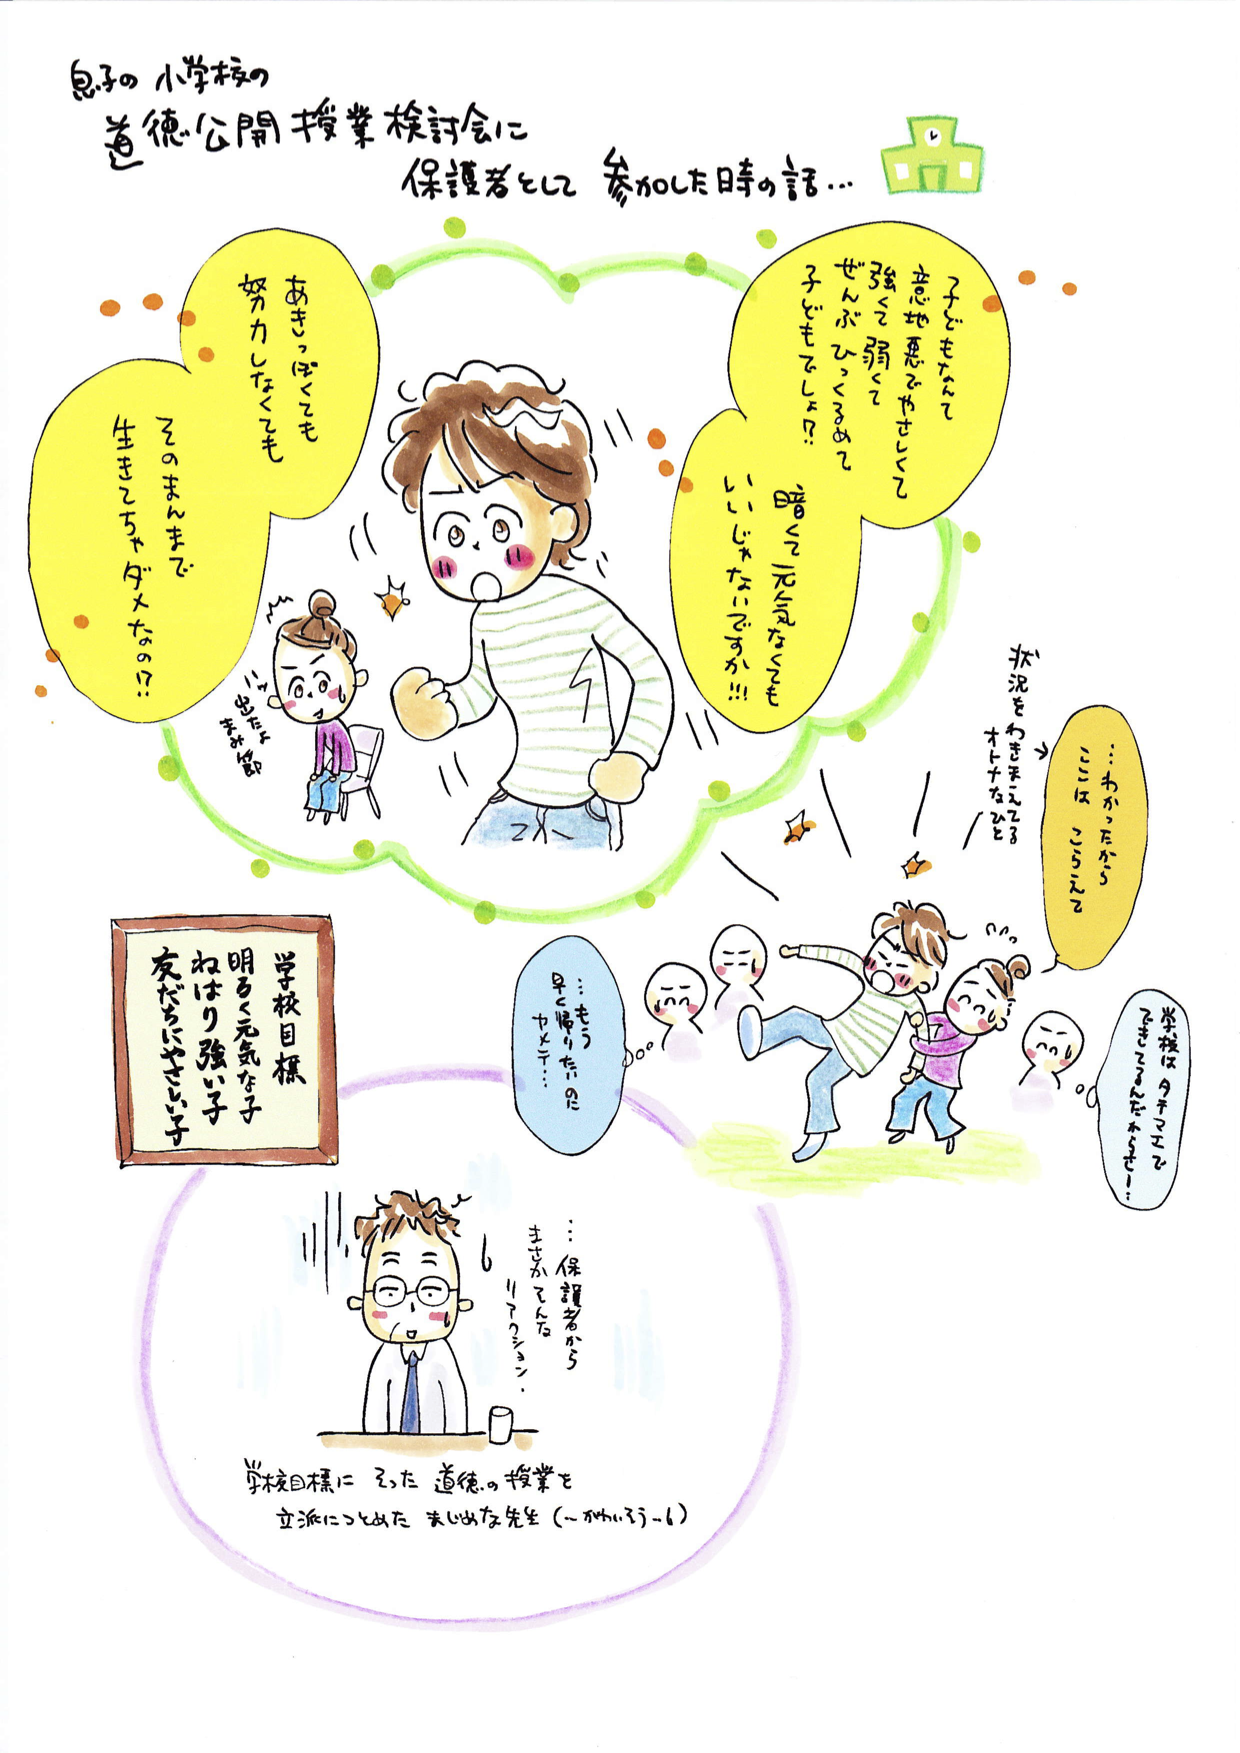 息子の 小学校の
道徳公開授業検討会に
保護者として 参加した時の話…
子どもなんて
意地悪でやさしくて
強くて弱くて
ぜんぶひっくるめて
子どもでしょ!?
暗くて元気なくても
いいじゃないですか!!!
あきっぽくても
努力しなくても
そのまんまで
生きてちゃダメなの!?
出たよ
まみ節
状況をわきまえてる
オトナなひと
…わかったから
ここは こらえて
…もう
早く帰りたいのに
ヤメテ…
学校はタテマエで
できてるんだからさー…
学校目標
明るく元気な子
ねばり強い子
友だちにやさしい子
…保護者から
まさかそんな
リアクション.
学校目標に そった 道徳の授業を
立派につとめた まじめな先生(～かわいそう…)